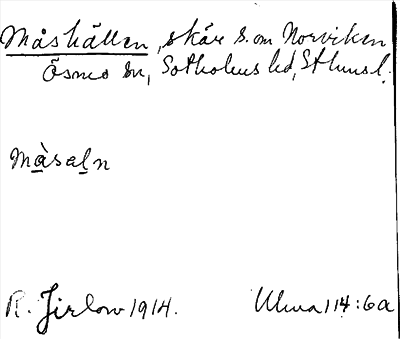 Måshällen, skär s. om Norviken
Ösmo sn, Sotholms hd, Sthms l.
Màsaln
R. Jirlow 1914. Ulma 114:6a